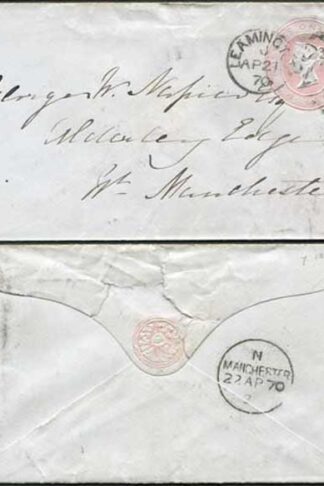 LEAMINGT
J
AP21
70
ON
George W. Napier Esq
Alderley Edge
Nr. Manchester
N
MANCHESTER
22 AP 70